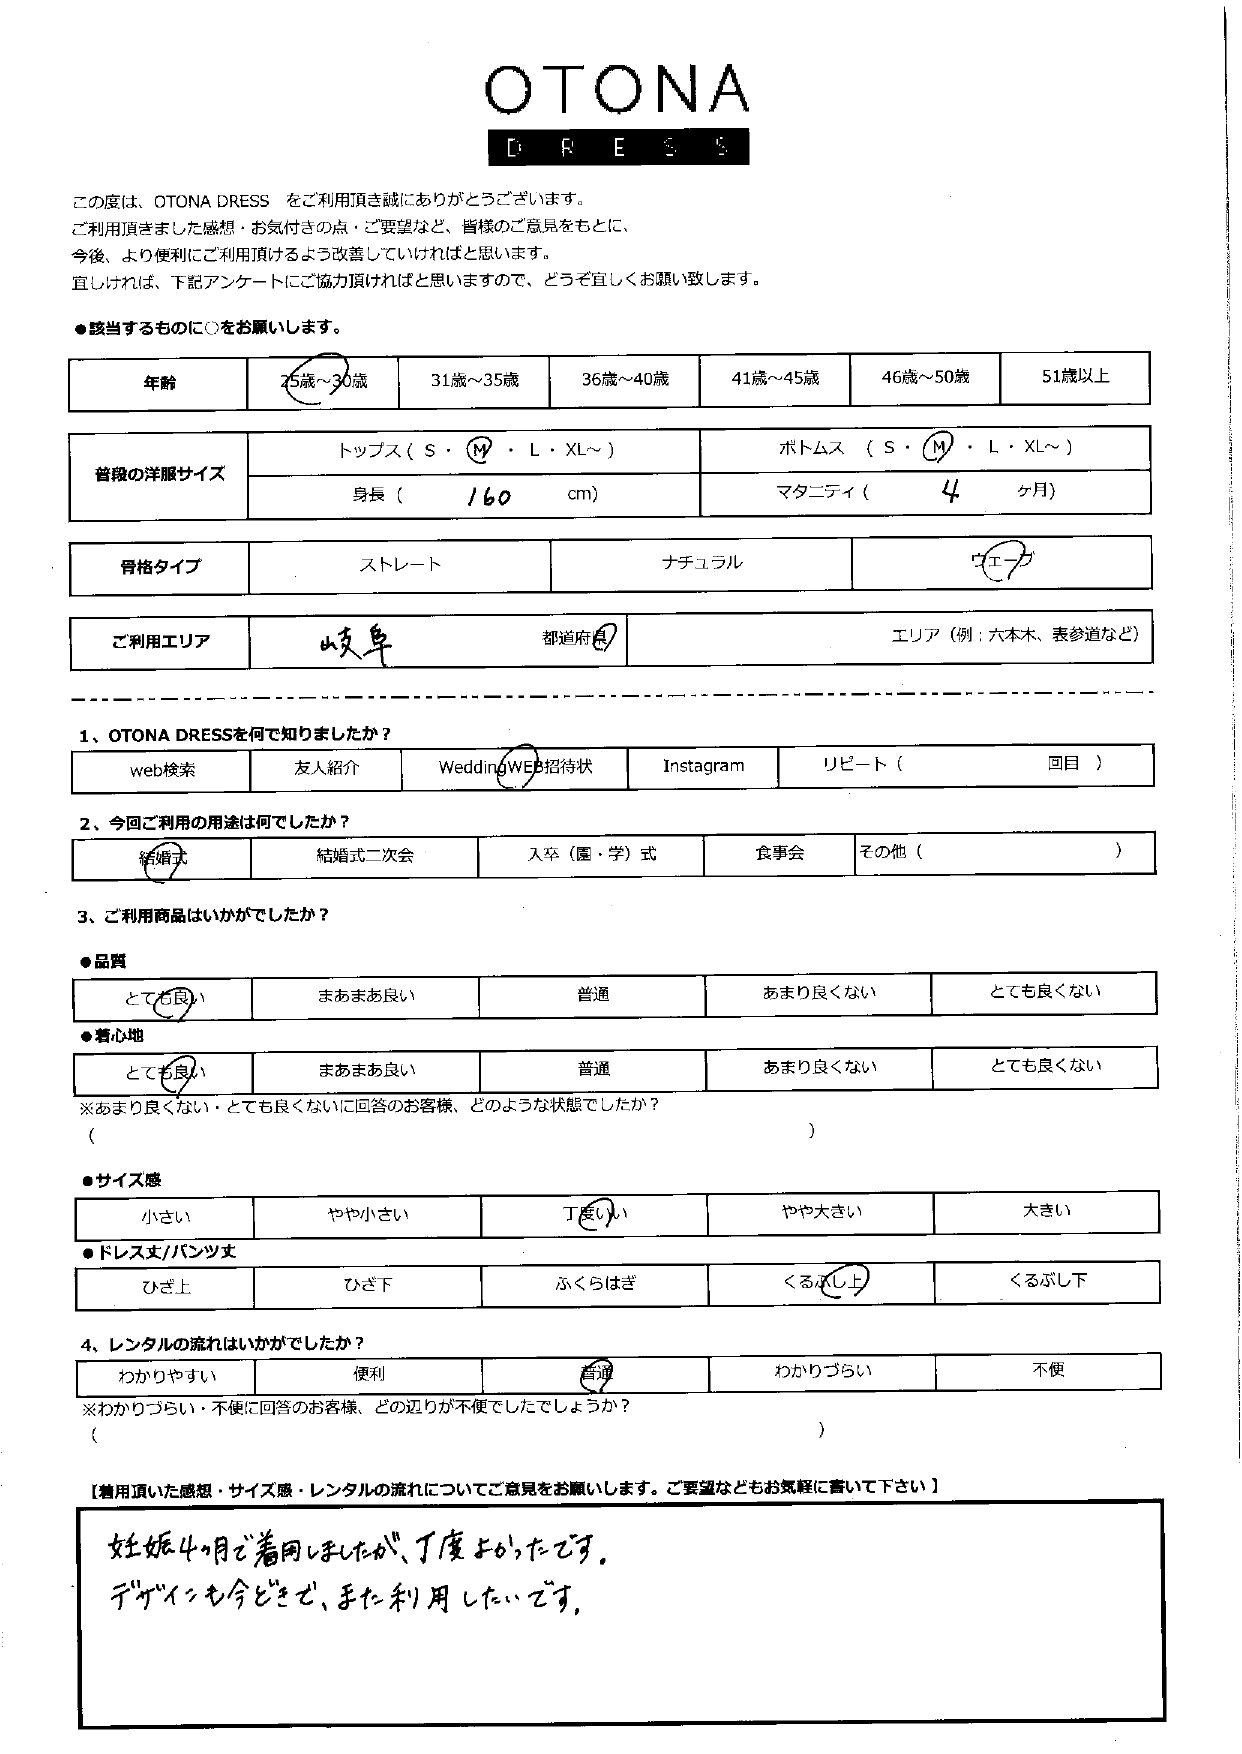 OTONA
DRESS
この度は、OTONA DRESS をご利用頂き誠にありがとうございます。
ご利用頂きました感想・お気付きの点・ご要望など、皆様のご意見をもとに、
今後、より便利にご利用頂けるよう改善していければと思います。
宜しければ、下記アンケートにご協力頂ければと思いますので、どうぞ宜しくお願い致します。
●該当するものに○をお願いします。
年齢 25歳～30歳 31歳～35歳 36歳～40歳 41歳～45歳 46歳～50歳 51歳以上
普段の洋服サイズ
トップス( S ・ M ・ L ・ XL～ ) ボトムス ( S ・ M ・ L ・ XL～ )
身長 ( 160 cm) マタニティ ( 4 ケ月)
骨格タイプ ストレート ナチュラル ウェーブ
ご利用エリア 岐阜 都道府県 エリア（例；六本木、表参道など）
1、OTONA DRESSを何で知りましたか？
web検索 友人紹介 WeddingWEB招待状 Instagram リピート（ 回目 ）
2、今回ご利用の用途は何でしたか？
結婚式 結婚式二次会 入卒（園・学）式 食事会 その他（ ）
3、ご利用商品はいかがでしたか？
●品質
とても良い まあまあ良い 普通 あまり良くない とても良くない
●着心地
とても良い まあまあ良い 普通 あまり良くない とても良くない
※あまり良くない・とても良くないに回答のお客様、どのような状態でしたか？
( )
●サイズ感
小さい やや小さい 丁度いい やや大きい 大きい
●ドレス丈/パンツ丈
ひざ上 ひざ下 ふくらはぎ くるぶし上 くるぶし下
4、レンタルの流れはいかがでしたか？
わかりやすい 便利 普通 わかりづらい 不便
※わかりづらい・不便に回答のお客様、どの辺りが不便でしたでしょうか？
( )
【着用頂いた感想・サイズ感・レンタルの流れについてご意見をお願いします。ご要望などもお気軽に書いて下さい】
妊娠4ヶ月で着用しましたが、丁度よかったです。
デザインも今どきで、また利用したいです。